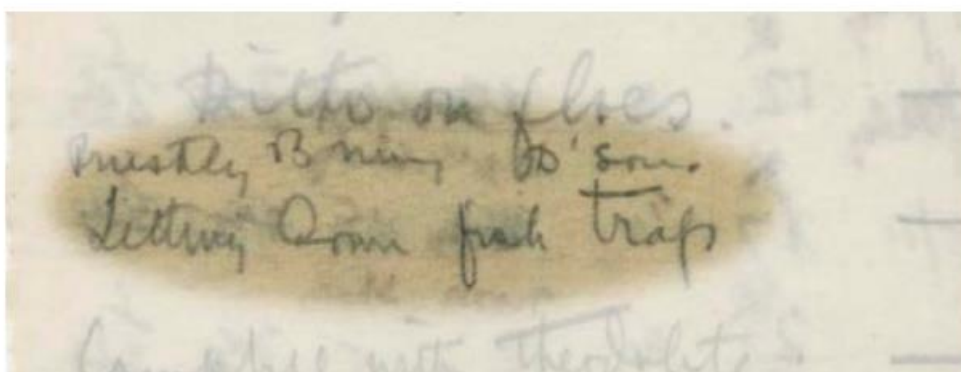 Ditto on floes.
Priestley Bning D'son.
Letting Down fish traps
Campbell with theodolite